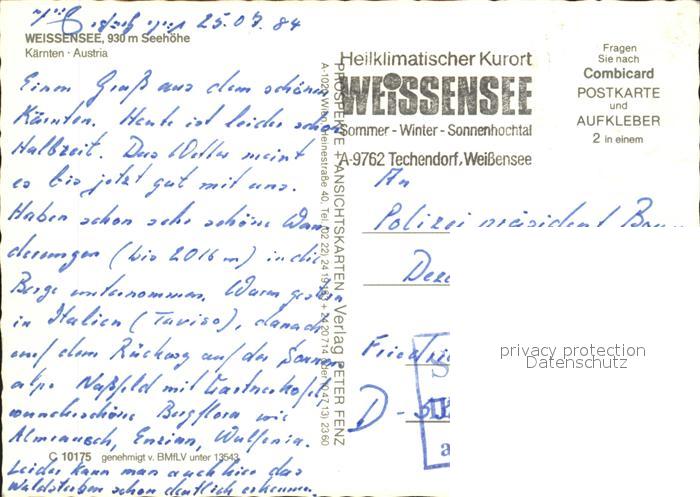 25.07.84
WEISSENSEE, 930 m Seehöhe
Kärnten · Austria
Einen Gruß aus dem schönen
Kärnten. Heute ist leider schon
Halbzeit. Das Wetter meint
es bis jetzt gut mit uns.
Haben schon sehr schöne Wan-
derungen (bis 2016 m) in die
Berge unternommen. Waren gestern
in Italien (Taviso), danach
auf dem Rückweg auf der Sonnen
alpe Naßfeld mit Gartnerkofel,
wunderschöne Bergflora wie
Almrausch, Enzian, Wulfenia.
C 10175 genehmigt v. BMfLV unter 13543
Leider kann man auch hier das
Waldsterben schon deutlich erkennen.
PROSPEKTE + ANSICHTSKARTEN - Verlag PETER FENZ
A-1020 Wien, Heinestraße 40, Tel. (02 22) 24
Heilklimatischer Kurort
WEiSSENSEE
Sommer - Winter - Sonnenhochtal
A-9762 Techendorf, Weißensee
Fragen
Sie nach
Combicard
POSTKARTE
und
AUFKLEBER
2 in einem
An
Polizeipräsident
Deze
Friedri
D -
privacy protection
Datenschutz